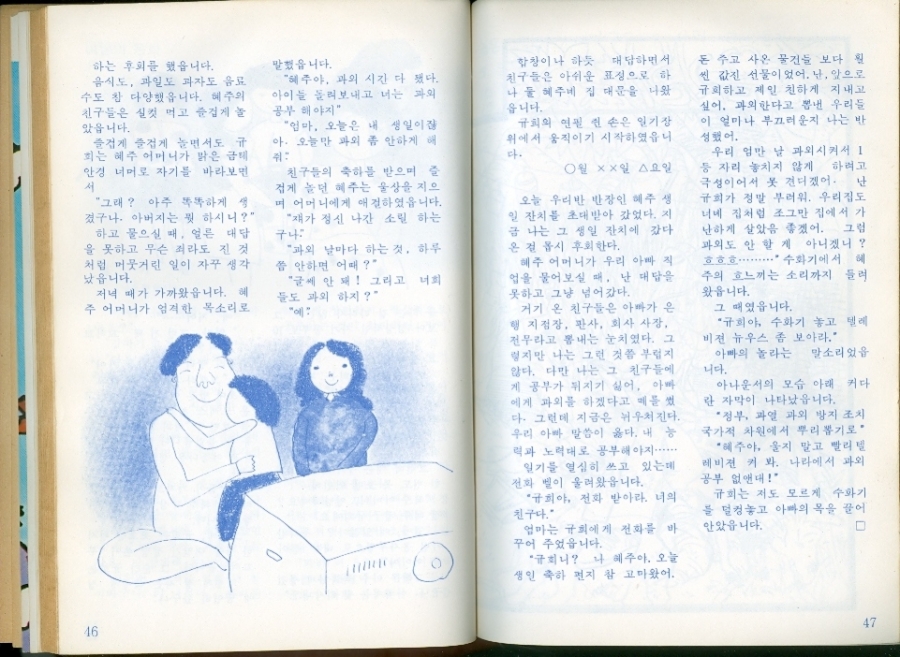 하는 후회를 했읍니다.
음식도, 과일도 과자도 음료
수도 참 다양했읍니다. 혜주의
친구들은 실컷 먹고 즐겁게 놀
았읍니다.
즐겁게 즐겁게 놀면서도 규
희는 혜주 어머니가 맑은 금테
안경 너머로 자기를 바라보면
서
"그래? 아주 똑똑하게 생
겼구나. 아버지는 뭣 하시니?"
하고 물으실 때, 얼른 대답
을 못하고 무슨 죄라도 진 것
처럼 머뭇거린 일이 자꾸 생각
났읍니다.
저녁 때가 가까왔읍니다. 혜
주 어머니가 엄격한 목소리로
말했읍니다.
"혜주야, 과외 시간 다 됐다.
아이들 돌려보내고 너는 과외
공부 해야지"
"엄마, 오늘은 내 생일이잖
아. 오늘만 과외 좀 안하게 해
줘."
친구들의 축하를 받으며 즐
겁게 놀던 혜주는 울상을 지으
며 어머니에게 애결하였읍니다.
"쟤가 정신 나간 소릴 하는
구나."
"과외 날마다 하는 것, 하루
쯤 안하면 어때?"
"글쎄 안 돼! 그리고 너희
들도 과외 하지?"
"예."
46
합창이나 하듯 대답하면서
친구들은 아쉬운 표정으로 하
나 둘 혜주네 집 대문을 나왔
읍니다.
규희의 연필 쥔 손은 일기장
위에서 움직이기 시작하였읍니
다.
○월 ××일 △요일
오늘 우리반 반장인 혜주 생
일 잔치를 초대받아 갔었다. 지
금 나는 그 생일 잔치에 갔다
온 걸 몹시 후회한다.
혜주 어머니가 우리 아빠 직
업을 물어보실 때, 난 대답을
못하고 그냥 넘어갔다.
거기 온 친구들은 아빠가 은
행 지점장, 판사, 회사 사장,
전무라고 뽐내는 눈치였다. 그
렇지만 나는 그런 것쯤 부럽지
않다. 다만 나는 그 친구들에
게 공부가 뒤지기 싫어, 아빠
에게 과외를 하겠다고 떼를 썼
다. 그런데 지금은 뉘우쳐진다.
우리 아빠 말씀이 옳다. 내 능
력과 노력대로 공부해야지……
일기를 열심히 쓰고 있는데
전화 벨이 울려왔읍니다.
"규희야, 전화 받아라. 너의
친구다."
엄마는 규희에게 전화를 바
꾸어 주었읍니다.
"규희니? 나 혜주야. 오늘
생일 축하 편지 참 고마왔어.
돈 주고 사온 물건들 보다 훨
씬 값진 선물이었어. 난, 앞으로
규희하고 제일 친하게 지내고
싶어, 과외한다고 뽐낸 우리들
이 얼마나 부끄러운지 나는 반
성했어.
우리 엄만 날 과외시켜서 1
등 자리 놓치지 않게 하려고
극성이어서 못 견디겠어. 난
규희가 정말 부러워. 우리집도
너네 집처럼 조그만 집에서 가
난하게 살았음 좋겠어. 그럼
과외도 안 할 게 아니겠니?
흐흐흐………" 수화기에서 혜
주의 흐느끼는 소리까지 들려
왔읍니다.
그 때였읍니다.
"규희야, 수화기 놓고 텔레
비젼 뉴우스 좀 보아라."
아빠의 놀라는 말소리였읍
니다.
아나운서의 모습 아래 커다
란 자막이 나타났읍니다.
"정부, 과열 과외 방지 조치
국가적 차원에서 뿌리뽑기로"
"혜주야, 울지 말고 빨리 텔
레비젼 켜 봐. 나라에서 과외
공부 없앤대!"
규희는 저도 모르게 수화기
를 덜컹놓고 아빠의 목을 끌어
안았읍니다. □
47